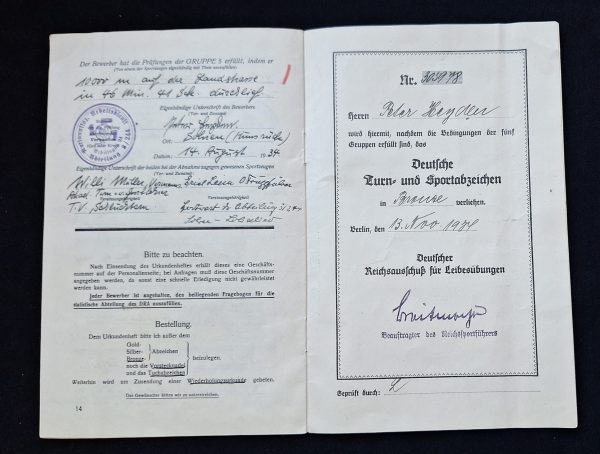 Der Bewerber hat die Prüfungen der GRUPPE 5 erfüllt, indem er
(Von einem der Sportzeugen eigenhändig mit Tinte auszufüllen)
10000 m auf der Landstrasse
in 46 Min. 41 Sek. durchlief
Eigenhändige Unterschrift des Bewerbers
(Vor- und Zuname)
Ort:
Datum: 14. August 1934
Eigenhändige Unterschrift der beiden bei der Abnahme zugegen gewesenen Sportzeugen
(Vor- und Zuname):
Willi
Vereinszugehörigkeit Vereinszugehörigkeit
T.V.
Bitte zu beachten.
Nach Einsendung des Urkundenheftes erhält dieses eine Geschäfts-
nummer auf der Personalienseite; bei Anfragen muß diese Geschäftsnummer
angegeben werden, da sonst eine schnelle Erledigung nicht gewährleistet
werden kann.
Jeder Bewerber ist angehalten, den beiliegenden Fragebogen für die
statistische Abteilung des DRA auszufüllen.
Bestellung.
Dem Urkundenheft bitte ich außer dem
Gold-
Silber- Abzeichen
Bronze-
noch die Vorstecknadel
und das Tuchabzeichen
beizulegen.
Weiterhin wird um Zusendung einer Wiederholungsurkunde gebeten.
Das Gewünschte bitten wir zu unterstreichen.
14
Nr. 303978
Herrn Peter Heyden
wird hiermit, nachdem die Bedingungen der fünf
Gruppen erfüllt sind, das
Deutsche
Turn- und Sportabzeichen
in Bronze verliehen.
Berlin, den 13. Nov 1934
Deutscher
Reichsausschuß für Leibesübungen
Breitmeyer
Beauftragter des Reichssportführers
Geprüft durch: